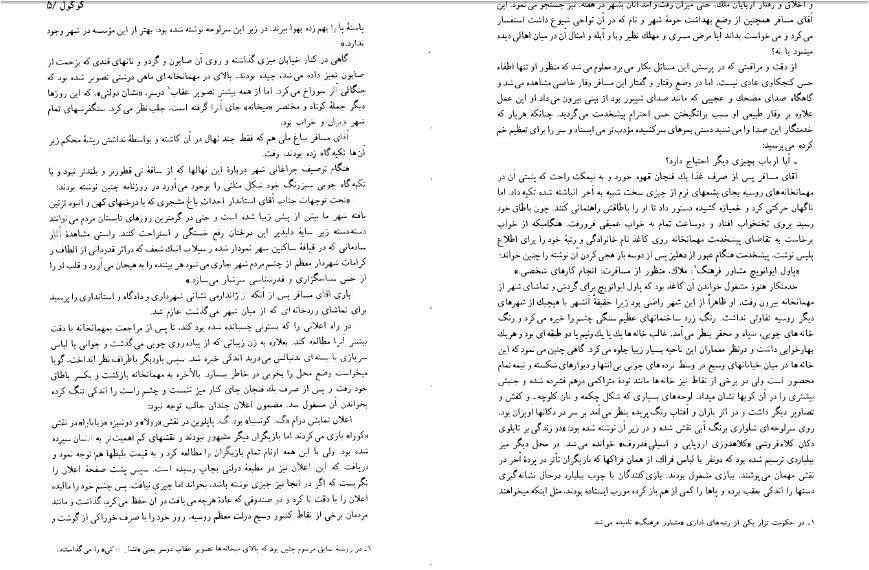 و اخلاق و رفتار اربابان ملک، حتی میزان رفت‌وآمد آنان بشهر در هفته، نیز جستجو می‌نمود. این
آقای مسافر همچنین از وضع بهداشت حومهٔ شهر و نام که در آن نواحی شیوع داشت استفسار
می‌کرد و می‌خواست بداند آیا مرض مسری و مهلک نظیر وبا و آبله و امثال آن در میان اهالی دیده
میشود یا نه؟
از دقت و مراقبتی که در پرسش این مسائل بکار می‌برد معلوم می‌شد که منظور او تنها اطفاء
حس کنجکاوی عادی نیست. اما در وضع رفتار و گفتار این مسافر وقار خاصی مشاهده می‌شد و
گاهگاه صدای مضحک و عجیبی که مانند صدای شیپور بود از بینی بیرون می‌داد او این عمل
علاوه بر وقار طبیعی او سبب برانگیختن حس احترام پیشخدمت می‌گردید. چنانکه هربار که
خدمتگار این صدا را می‌شنید دستی بموهای سرکشیده مؤدب‌تر می‌ایستاد و سر را برای تعظیم خم
کرده می‌پرسید:
ـ آیا ارباب بچیزی دیگر احتیاج دارد؟
آقای مسافر پس از صرف غذا یک فنجان قهوه خورد و به نیمکت راحت که پشتی آن در
مهمانخانه‌های روسیه بجای پشمهای نرم از چیزی سخت شبیه به آجر انباشته شده تکیه داد. اما
ناگهان حرکتی کرد و خمیازه کشیده دستور داد تا او را باطاقش راهنمائی کنند. چون باطاق خود
رسید بروی تختخواب افتاد و دوساعت تمام به خواب عمیقی فرورفت. هنگامیکه از خواب
برخاست به تقاضای پیشخدمت مهمانخانه روی کاغذ نام خانوادگی و رتبهٔ خود را برای اطلاع
پلیس نوشت. پیشخدمت هنگام عبور از دهلیز پس از دوسه بار هجی‌کردن آن نوشته را چنین خواند:
«پاول ایوانویچ مشاور فرهنگ۱، ملاک، منظور از مسافرت: انجام کارهای شخصی.»
خدمتکار هنوز مشغول خواندن آن کاغذ بود که پاول ایوانویچ برای گردش و تماشای شهر از
مهمانخانه بیرون رفت. او ظاهراً از این شهر راضی بود زیرا حقیقةً آنشهر با هیچیک از شهرهای
دیگر روسیه تفاوتی نداشت. رنگ زرد ساختمانهای عظیم سنگی چشم را خیره می‌کرد و رنگ
خانه‌های چوبی، سیاه و محقر بنظر می‌آمد. غالب خانه‌ها یک یا یک‌ونیم یا دو طبقه‌ای بود و هریک
بهارخوابی داشت و درنظر معماران این ناحیه بسیار زیبا جلوه می‌کرد. گاهی چنین می‌نمود که این
خانه‌ها در میان خیابانهای وسیع در وسط نرده‌های چوبی بی‌انتها و دیوارهای شکسته و نیمه‌تمام
محصور است ولی در برخی از نقاط نیز خانه‌ها مانند تودهٔ متراکمی درهم فشرده شده و جنبش
بیشتری را در آن کویها نشان میداد. لوحه‌های بسیاری که شکل چکمه و نان کلوچه ـ و کفش و
تصاویر دیگر داشت و در اثر باران و آفتاب رنگ‌پریده بنظر می‌آمد بر سر در دکانها آویزان بود.
روی سرلوحه‌ای شلواری برنگ آبی نقش شده و در زیر آن نوشته شده بود:
دکان کلاه‌فروشی «کلاهدوزی اروپایی و اسیلی‌فدروف» خوانده می‌شد. در محل دیگر میز
بیلیاردی ترسیم شده بود که دونفر با لباس فراک، از همان فراکها که بازیگران تئاتر در پردهٔ آخر در
نقش مهمان می‌پوشند، ببازی مشغول بودند. بازی‌کنندگان با چوب بیلیارد درحال نشانه‌گیری
دستها را اندکی بعقب برده و پاها را کمی از هم باز کرده مورب ایستاده بودند، مثل اینکه میخواهند
۱ـ در حکومت تزار یکی از رتبه‌های اداری «مشاور فرهنگ» نامیده می‌شد
گوگول /۵
پاشنهٔ پا را بهم زده بهوا بپرند. در زیر این سرلوحه نوشته شده بود: بهتر از این مؤسسه در شهر وجود
ندارد.»
گاهی در کنار خیابان میزی گذاشته و روی آن صابون و گردو و نانهای قندی که بزحمت از
صابون تمیز داده می‌شد، چیده بودند. بالای در مهمانخانه‌ای ماهی درشتی تصویر شده بود که
چنگالی آنرا سوراخ می‌کرد. اما از همه بیشتر تصویر عقاب۱ دوسر، «نشان دولتی»، که این روزها
دیگر جملهٔ کوتاه و مختصر «میخانه» جای آنرا گرفته است، جلب‌نظر می‌کرد. سنگفرشهای تمام
شهر ویران و خراب بود.
آقای مسافر بباغ ملی هم که فقط چند نهال در آن کاشته و بواسطهٔ نداشتن ریشهٔ محکم زیر
آن‌ها تکیه‌گاه زده بودند، رفت.
هنگام توصیف چراغانی شهر دربارهٔ این نهالها که از ساقهٔ نی قطورتر و بلندتر نبود و با
تکیه‌گاه چوبی سبزرنگ خود شکل مثلثی را بوجود می‌آورد در روزنامه چنین نوشته بودند:
«تحت توجهات جناب آقای استاندار احداث باغ مشجری که با درختهای کهن و انبوه تزئین
یافته شهر ما بیش از پیش زیبا شده است و حتی در گرمترین روزهای تابستان مردم می‌توانند
دسته‌دسته زیر سایهٔ دلپذیر این درختان رفع خستگی و استراحت کنند. راستی مشاهدهٔ آثار
سادمانی که در قیافهٔ ساکنین شهر نمودار شده و سیلاب اشک شعف که دراثر قدردانی از الطاف و
کرامات شهردار معظم از چشم مردم شهر جاری می‌شود هر بیننده را به هیجان می‌آورد و قلب او را
از حس سپاسگزاری و قدرشناسی سرشار می‌سازد.»
باری آقای مسافر پس از آنکه از ژاندارمی نشانی شهرداری و دادگاه و استانداری را پرسید
برای تماشای رودخانه‌ای که از میان شهر می‌گذشت عازم شد.
در راه اعلانی را که بستونی چسبانده شده بود کند، تا پس از مراجعت بمهمانخانه با دقت
بیشتر آنرا مطالعه کند. بعلاوه به زن زیبائی که از پیاده‌روی چوبی می‌گذشت و جوانی با لباس
سربازی با بسته‌ای بدنبالش می‌دوید اندکی خیره شد. سپس باردیگر باطراف نظر انداخت، گویا
میخواست وضع محل را بخوبی در خاطر بسپارد. بالأخره به مهمانخانه بازگشت و یکسر باطاق
خود رفت و پس از صرف یک فنجان چای کنار میز نشست و چشم راست را اندکی تنگ کرده
بخواندن آن مشغول شد. مضمون اعلان چندان جالب توجه نبود:
اعلان نمایش درام «گ. کوتسبا» بود. گ. پاپلوین در نقش «رولا» و دوشیزه «زیابلوا» در نقش
«کورا» بازی می‌کردند اما بازیگران دیگر مشهور نبودند و نقشهای کم اهمیت‌تر به آنشان سپرده
شده بود. ولی با این همه اونام تمام بازیگران را مطالعه کرد و به قیمت بلیطها هم توجه نمود و
دریافت که این اعلان نیز در مطبعهٔ دولتی بچاپ رسیده است. سپس پشت صفحهٔ اعلان را
نگریست که اگر در آنجا نیز چیزی نوشته باشد، بخواند اما چیزی نیافت. پس چشم خود را مالیده
اعلان را بادقت تا کرد و در صندوقی که عادةً هرچه می‌یافت در آن حفظ می‌کرد، گذاشت و مانند
مردمان برخی از نقاط کشور وسیع دولت معظم روسیه، روز خود را با صرف خوراکی از گوشت و
۱ـ در روسیهٔ سابق مرسوم چنین بود که بالای میخانه‌ها تصویر عقاب دوسر یعنی «نشان دولتی» را می‌گذاشتند.